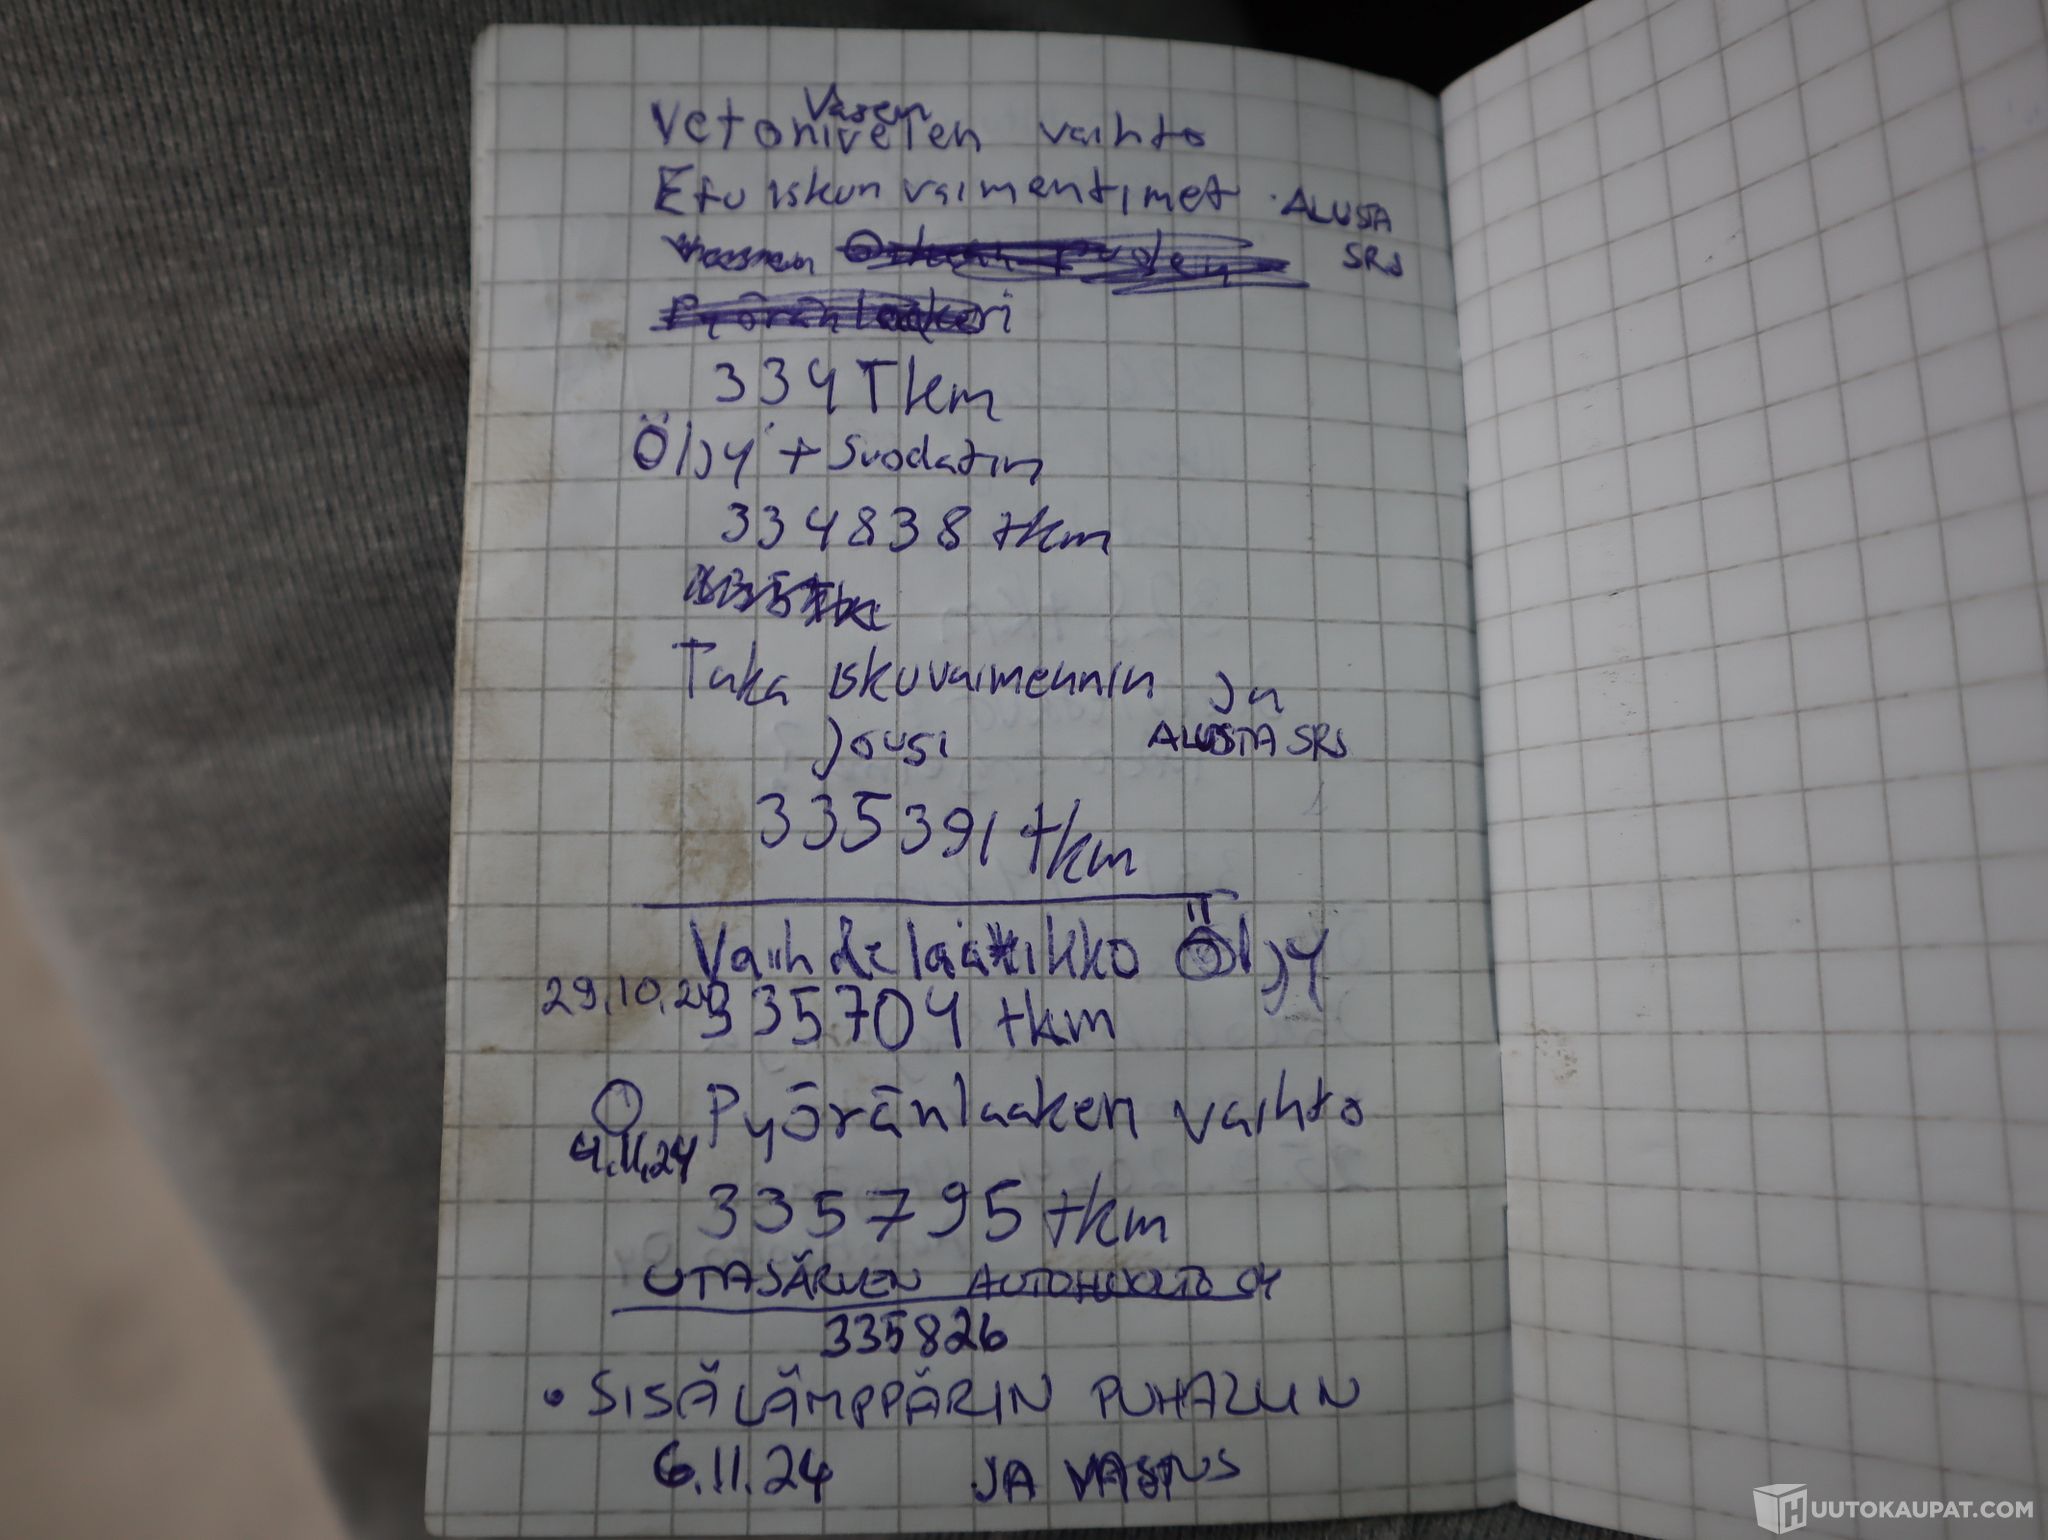 Vasen
Vetonivelen vaihto
Etu iskun vaimentimet · ALUSTA
SRS
Pyöränlaakeri
334 Tkm
Öljy + Suodatin
334838 tkm
Taka iskuvaimennin ja
jousi ALUSTA SRS
335391 tkm
Vaihdelaatikko Öljy
29.10.24 335704 tkm
O Pyöränlaakeri vaihto
4.11.24
335795 tkm
UTAJÄRVEN AUTOHUOLTO OY
335826
• SISÄLÄMPPÄRIN PUHALLIN
6.11.24 JA VASTUS
HUUTOKAUPAT.COM